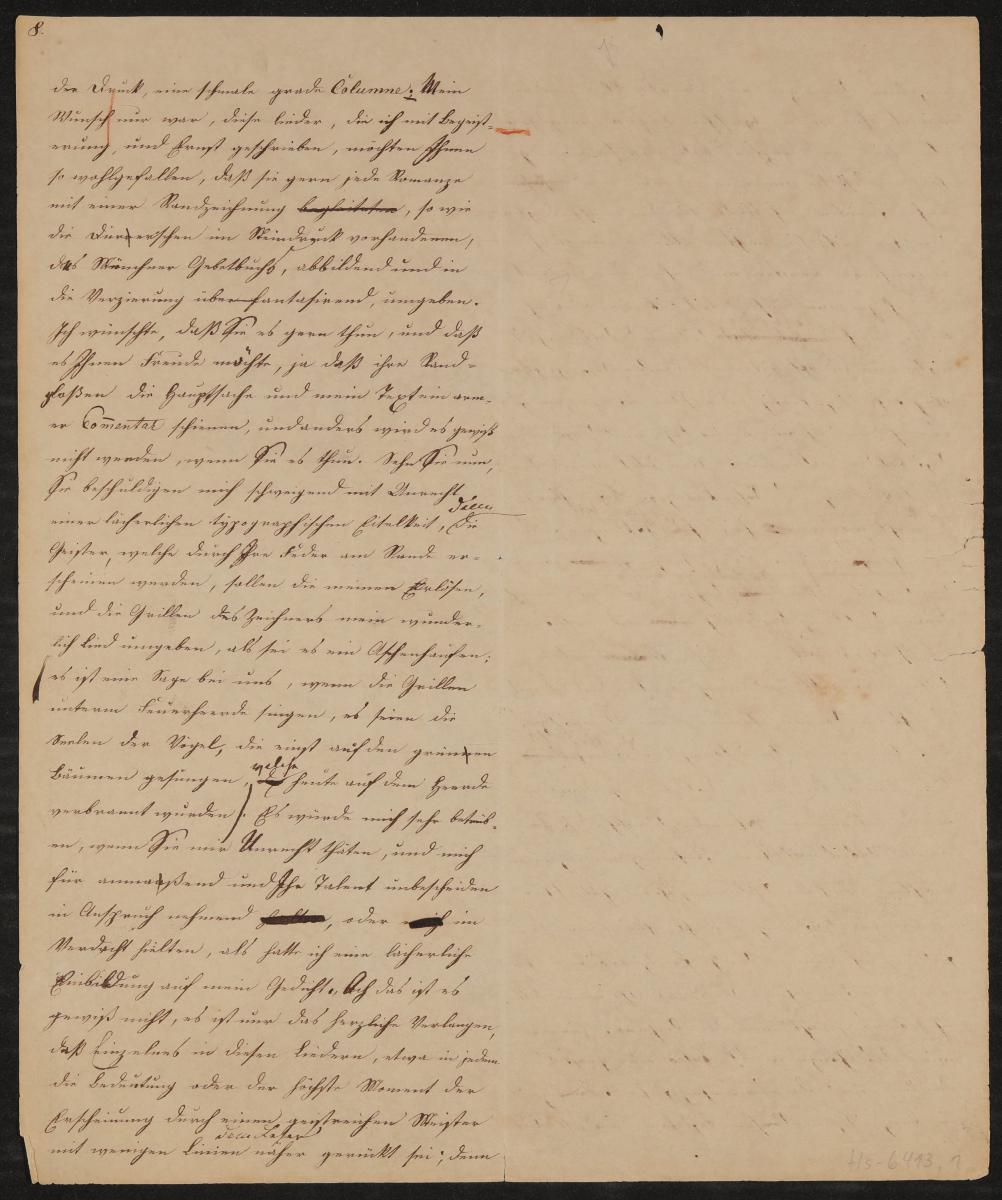 8.
der Druck, eine schmale grade Columne; Mein
Wunsch nur war, diese Lieder, die ich mit Begeist-
erung, und Ernst geschrieben, möchten Ihnen
so wohlgefallen, daß sie gern jede Romanze
mit einer Randzeichnung begleiteten, so wie
die Dürerschen im Steindruck vorhandenen,
des Münchner Gebetbuchs, abbildend und in
die Verzierung über fantasirend, umgeben.
Ich wünschte, daß Sie es gern thun, und daß
es Ihnen Freude möchte, ja daß ihre Rand-
gloßen die Hauptsache und mein Text ein arm-
er Comentar schienen, und anders wird es gewiß
nicht werden, wenn Sie es thun. Sehn Sie nun,
Sie beschuldigen mich schweigend mit Unrecht
einer lächerlichen typographischen Eitelkeit, denn die
Geister, welche durch Ihre Feder am Rande er-
scheinen werden, sollen die meinen Erlösen,
und die Grillen des Zeichners mein wunder-
lich Lied umgeben, als sei es ein Aschenhaufen;
es ist eine Sage bei uns, wenn die Grillen
unterm Feuerheerde singen, es seien die
Seelen der Vögel, die einst auf den grünen
Bäumen gesungen, welche heute auf dem Heerde
verbrannt wurden). Es würde mich sehr betrüb-
en, wenn Sie mir Unrecht thäten, und mich
für anmaßend und Ihr Talent unbescheiden
in Anspruch nehmend halten, oder mich im
Verdacht hielten, als hatte ich eine lächerliche
Einbildung auf mein Gedicht. Ach das ist es
gewiß nicht, es ist nur das herzliche Verlangen,
daß Einzelnes in diesen Liedern, etwa in jedem
die Bedeutung oder der höchste Moment der
Erscheinung durch einen geistreichen Meister
mit wenigen Linien dem Leser näher gerückt sei; denn
Hs-6413,1